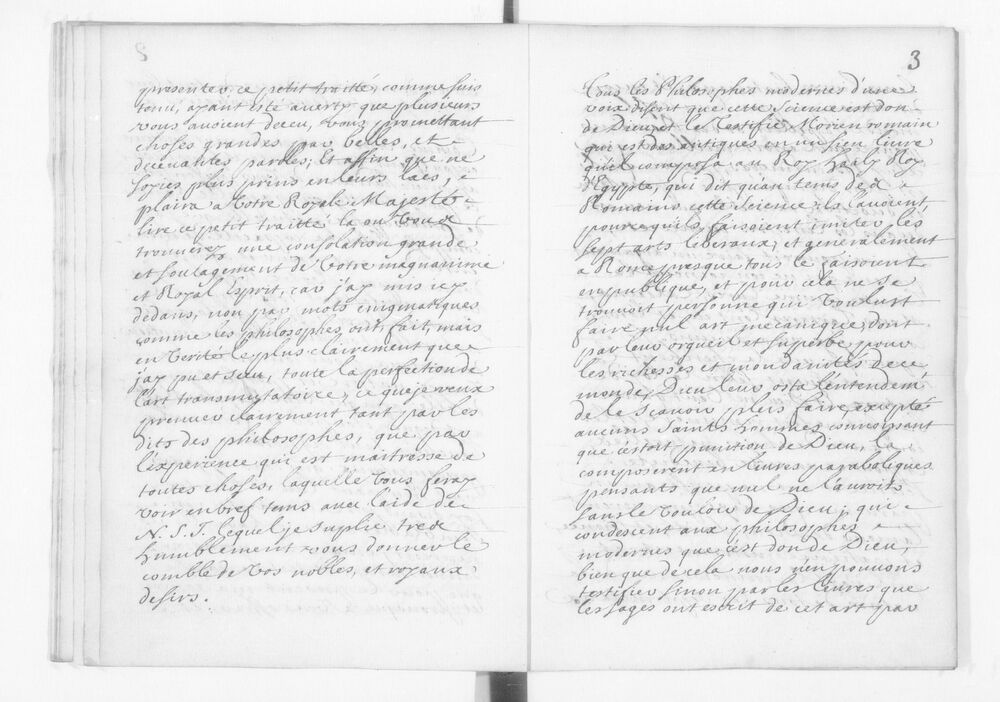 presenter ce petit traitté, comme suis
tenu, ayant esté averty que plusieurs
vous avoient deceu, vous promettant
choses grandes par belles, et
decevantes paroles; Et affin que ne
soyies plus prins en leurs lacs,
plaira a Votre Royale Majesté
lire ce petit traitté la ou Vous
trouverez une consolation grande
et soulagement de Votre magnanime
et Royal Esprit, car j'ay mis icy
dedans, non par mots enigmatiques
comme les philosophes ont fait, mais
en Verité le plus clairement que
j'ay pu et sceu, toute la perfection de
l'art transmutatoire, ce que je veux
prouver clairement tant par les
dits des philosophes, que par
l'experience qui est maitresse de
toutes choses, laquelle Vous feray
voir en bref tems avec l'aide de
N. S. J. lequel je suplie tres
humblement vous donner le
comble de Vos nobles, et royaux
desirs.
3
Tous les Philosophes modernes d'une
voix disent que cette Science est don
de Dieu, et le Testifie Morien romain
qui est des antiques en un sien livre
qu'il composa au Roy Haaly Roy
d'Egypte, qui dit qu'au tems des
Romains cette Science ils l'avoient,
pource qu'ils faisoient imiter les
sept arts liberaux, et generalement
a Rome presque tous le faisoient
en publique, et pour cela ne se
trouvoit personne qui Voulust
faire nul art mecanique, dont
par leur orgueil et superbe pour
les richesses et mondanités de ce
monde, Dieu leur osta l'entendem.t
de le Scavoir plus faire, excepté
aucuns Saints hommes connoissant
que c'estoit punition de Dieu, la
composerent en livres paraboliques
pensants que nul ne l'auroit
sans le Vouloir de Dieu, qui
condescent aux philosophes
modernes que c'est don de Dieu,
bien que de cela nous n'en pouvons
testifier sinon par les livres que
les sages ont escrit de cet art par